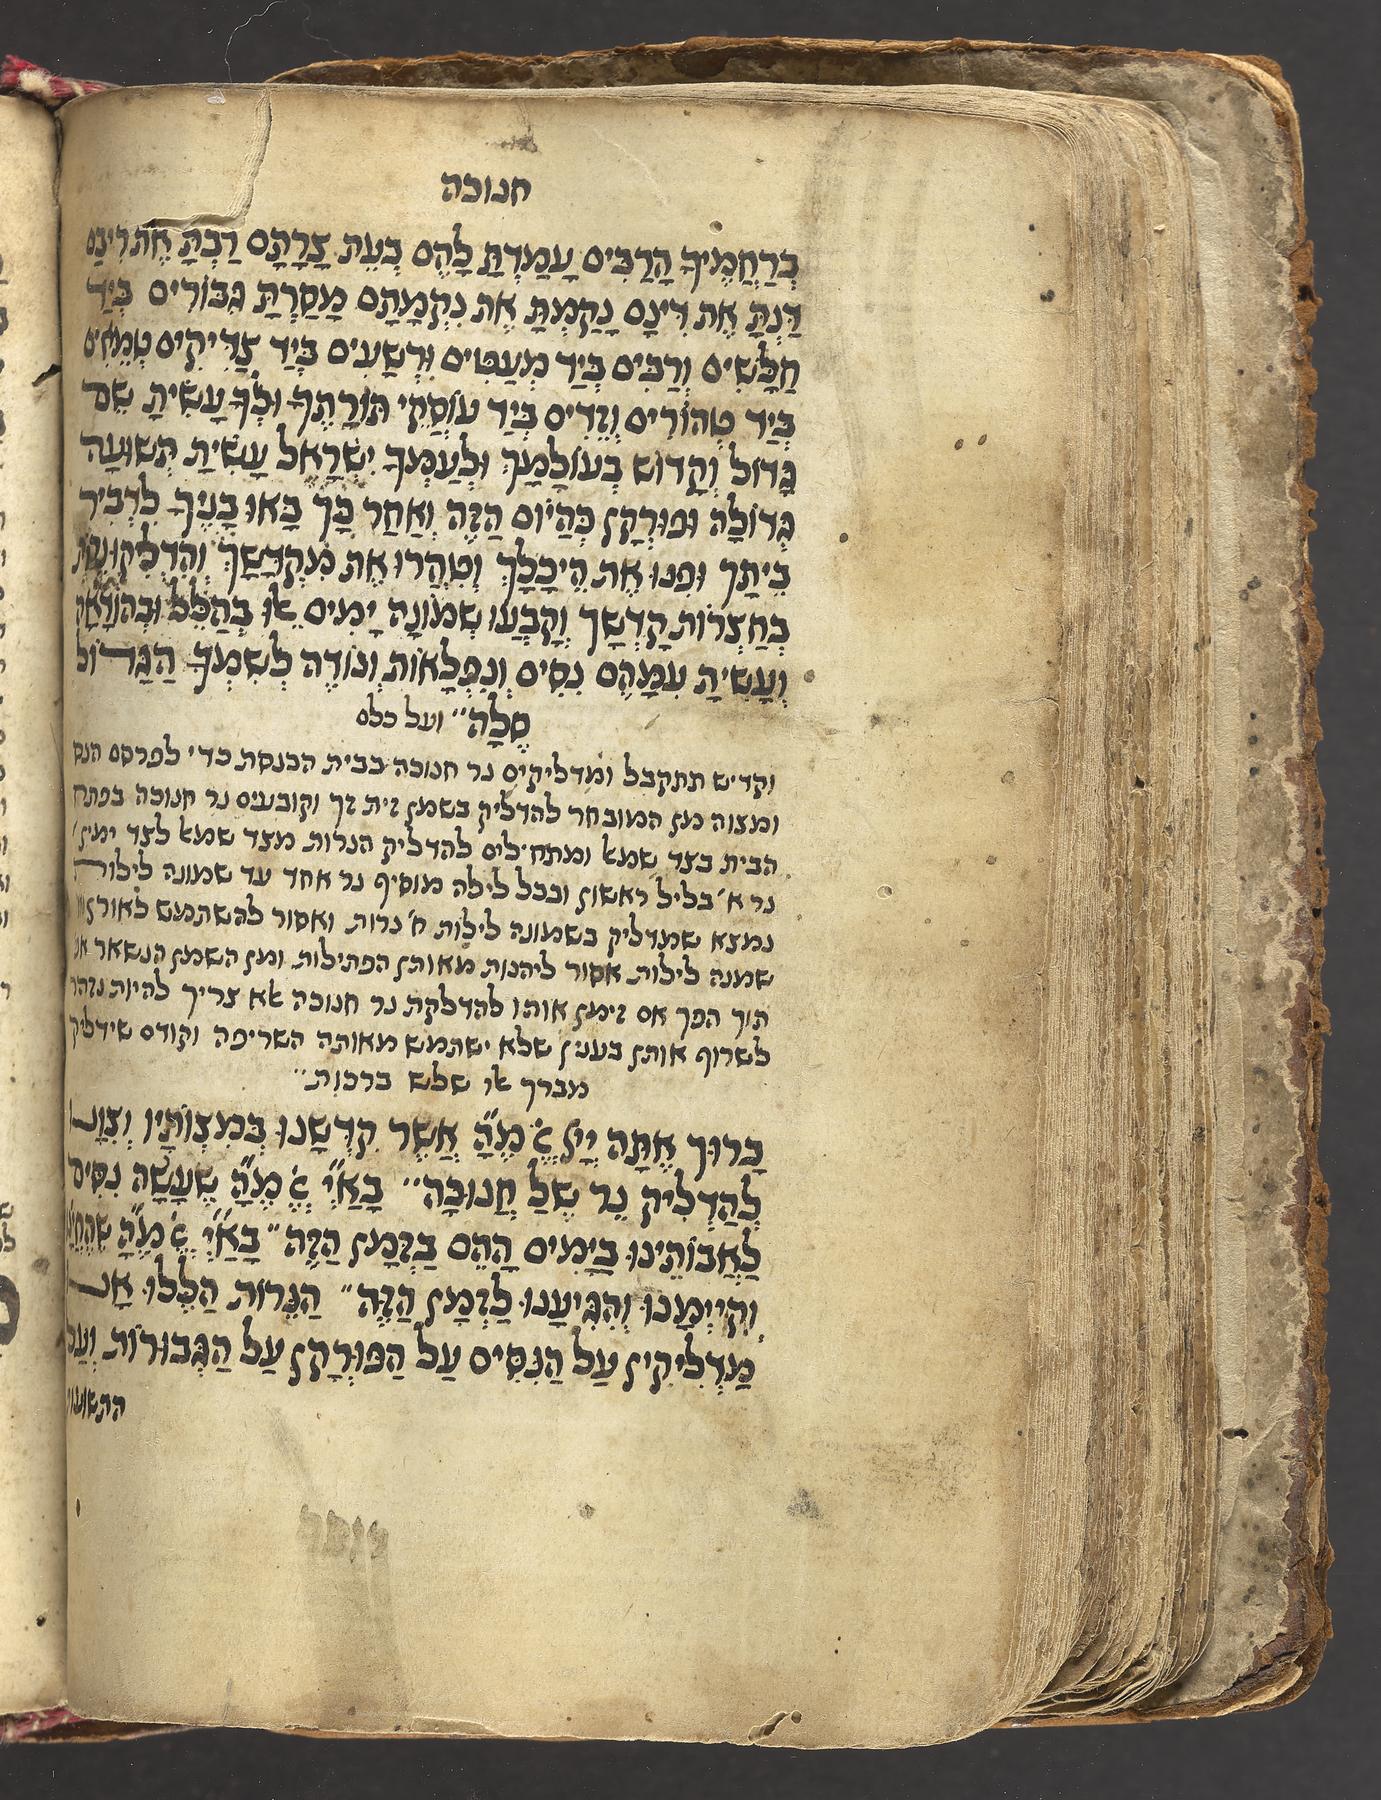 חנוכה
בְּרַחֲמֶיךָ הָרַבִּים עָמַדְתָּ לָהֶם בְּעֵת צָרָתָם רַבְתָּ אֶת רִיבָם
דַּנְתָּ אֶת דִּינָם נָקַמְתָּ אֶת נִקְמָתָם מָסַרְתָּ גִּבּוֹרִים בְּיַד
חַלָּשִׁים וְרַבִּים בְּיַד מְעַטִּים וּרְשָׁעִים בְּיַד צַדִּיקִים טְמֵאִים
בְּיַד טְהוֹרִים וְזֵדִים בְּיַד עוֹסְקֵי תּוֹרָתֶךָ וּלְךָ עָשִׂיתָ שֵׁם
גָּדוֹל וְקָדוֹשׁ בְּעוֹלָמָךְ וּלְעַמְּךָ יִשְׂרָאֵל עָשִׂיתָ תְּשׁוּעָה
גְּדוֹלָה וּפוּרְקָן כְּהַיּוֹם הַזֶּה וְאַחַר כָּךְ בָּאוּ בָּנֶיךָ לִדְבִיר
בֵּיתָךְ וּפִנּוּ אֶת הֵיכָלָךְ וְטִהֲרוּ אֶת מִקְדָּשָׁךְ וְהִדְלִיקוּ נֵרוֹת
בְּחַצְרוֹת קָדְשָׁךְ וְקָבְעוּ שְׁמוֹנָה יָמִים אֵלּוּ בְּהַלֵּל וּבְהוֹדָאָה
וְעָשִׂיתָ עִמָּהֶם נִסִּים וְנִפְלָאוֹת וְנוֹדֶה לְשִׁמְךָ הַגָּדוֹל
סֶלָה״ ועל כלם
וקדיש תתקבל ומדליקים נר חנוכה בבית הכנסת כדי לפרסם הנס
ומצוה מן המובחר להדליק בשמן זית זך וקובעים נר חנוכה בפתח
הבית בצד שמאל ומתחילים להדליק הנרות מצד שמאל לצד ימין
נר א׳ בליל ראשון ובכל לילה מוסיף נר אחד עד שמונה לילות
נמצא שמדליק בשמונה לילות ח׳ נרות ואסור להשתמש לאורן
שמנה לילות אסור ליהנות מאותן הפתילות ומן השמן הנשאר
תוך הפך אם זימן אותו להדלקת נר חנוכה אלא צריך להיות נזהר
לשרוף אותן בענין שלא ישתמש מאותה השריפה וקודם שידליק
מברך אלו שלש ברכות״
בָּרוּךְ אַתָּה יְיָ אֱ׳ מֶ״הָ אֲשֶׁר קִדְּשָׁנוּ בְּמִצְוֹתָיו וְצִוָּנוּ
לְהַדְלִיק נֵר שֶׁל חֲנוּכָּה״ בָּאַ״יְ אֱ׳ מֶ״הָ שֶׁעָשָׂה נִסִּים
לַאֲבוֹתֵינוּ בַּיָּמִים הָהֵם בַּזְּמַן הַזֶּה״ בָּאַ״יְ אֱ׳ מֶ״הָ שֶׁהֶחֱיָנוּ
וְקִיְּימָנוּ וְהִגִּיעָנוּ לַזְּמַן הַזֶּה״ הַנֵּרוֹת הַלָּלוּ אָנוּ
מַדְלִיקִין עַל הַנִּסִּים עַל הַפּוּרְקָן עַל הַגְּבוּרוֹת וְעַל
התשועות